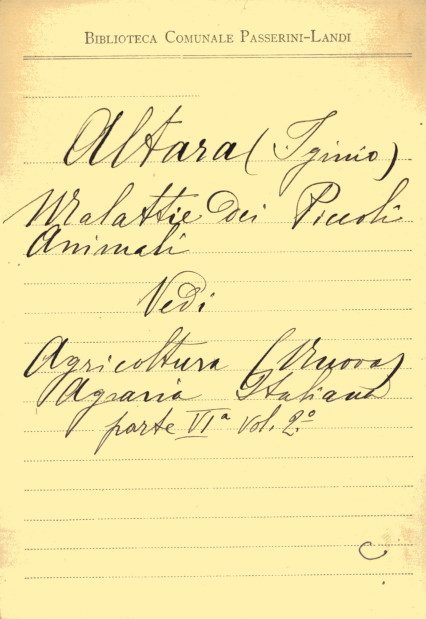 BIBLIOTECA COMUNALE PASSERINI-LANDI
Altara (Iginio)
Malattie dei Piccoli
Animali
Vedi
Agricoltura (Nuova)
Agraria Italiana
parte VIª vol. 2º